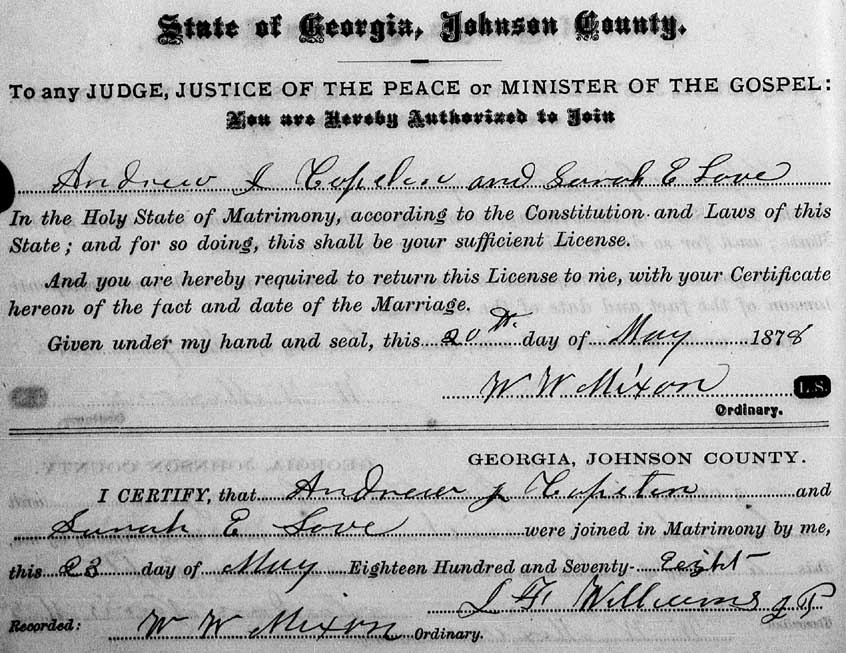 State of Georgia, Johnson County.
To any JUDGE, JUSTICE OF THE PEACE or MINISTER OF THE GOSPEL:
You are Hereby Authorized to Join
Andrew J Copelin and Sarah E Love
In the Holy State of Matrimony, according to the Constitution and Laws of this
State; and for so doing, this shall be your sufficient License.
And you are hereby required to return this License to me, with your Certificate
hereon of the fact and date of the Marriage.
Given under my hand and seal, this 20th day of May 1878
W W Mixon L.S.
Ordinary.
GEORGIA, JOHNSON COUNTY.
I CERTIFY, that Andrew J and
Sarah E Love were joined in Matrimony by me,
this 23 day of May Eighteen Hundred and Seventy-eight
Williams J P
Recorded: W W Mixon Ordinary.